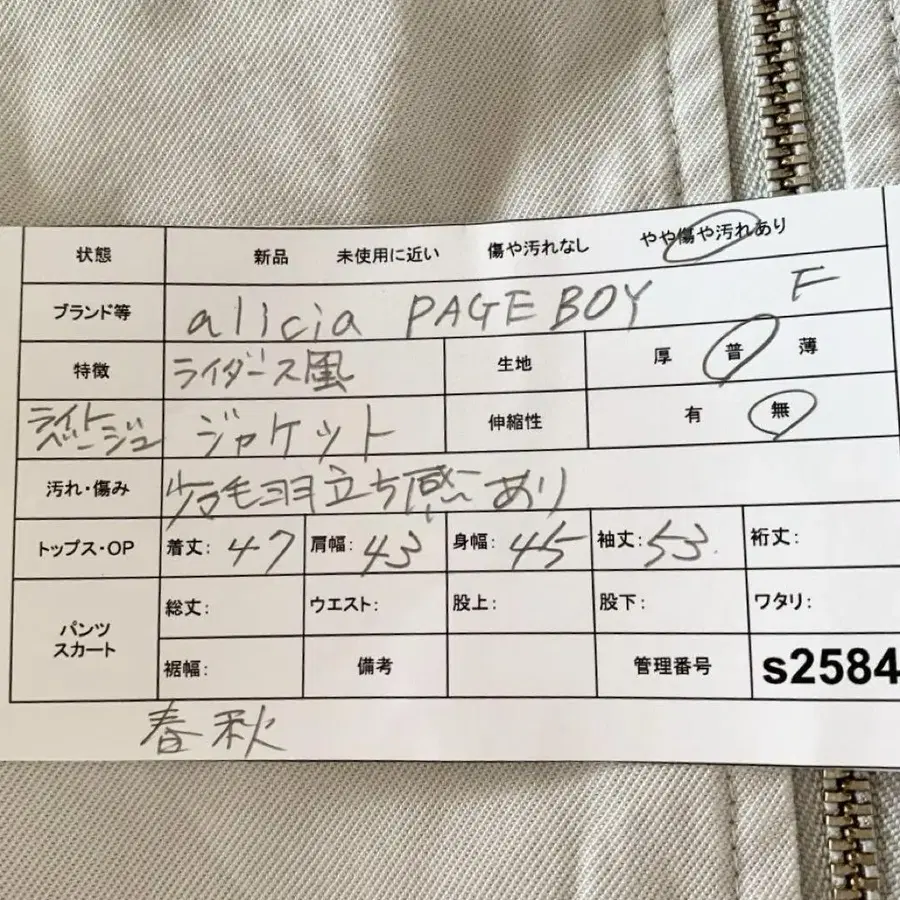 状態 新品 未使用に近い 傷や汚れなし やや傷や汚れあり
ブランド等 alicia PAGE BOY F
特徴 ライダース風 生地 厚 普 薄
ライトベージュ ジャケット 伸縮性 有 無
汚れ・傷み 少々毛羽立ち感あり
トップス・OP 着丈: 47 肩幅: 43 身幅: 45 袖丈: 53 裄丈:
パンツ スカート 総丈: ウエスト: 股上: 股下: ワタリ:
裾幅: 備考 管理番号 s2584
春秋